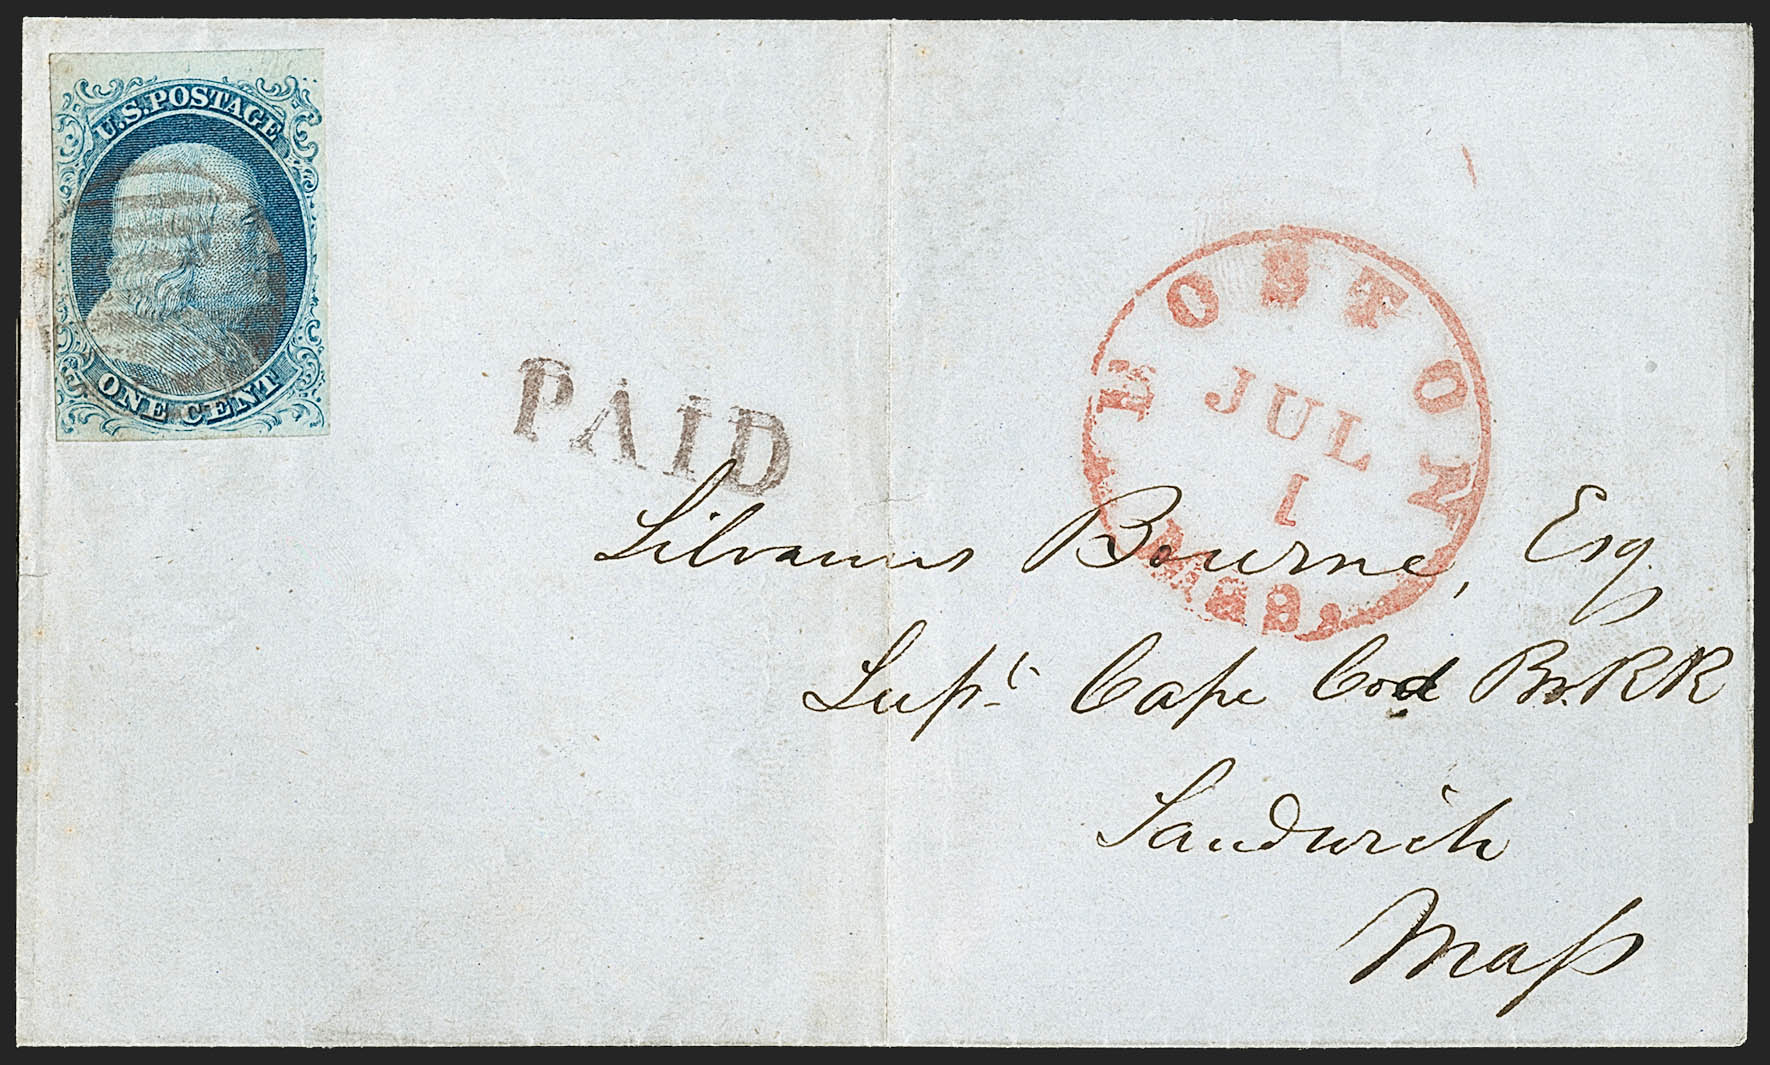 U.S. POSTAGE
ONE CENT
PAID
BOSTON
JUL
1
MASS.
Silvanus Bourne, Esq.
Supt. Cape Cod Br. RR
Sandwich
Mass